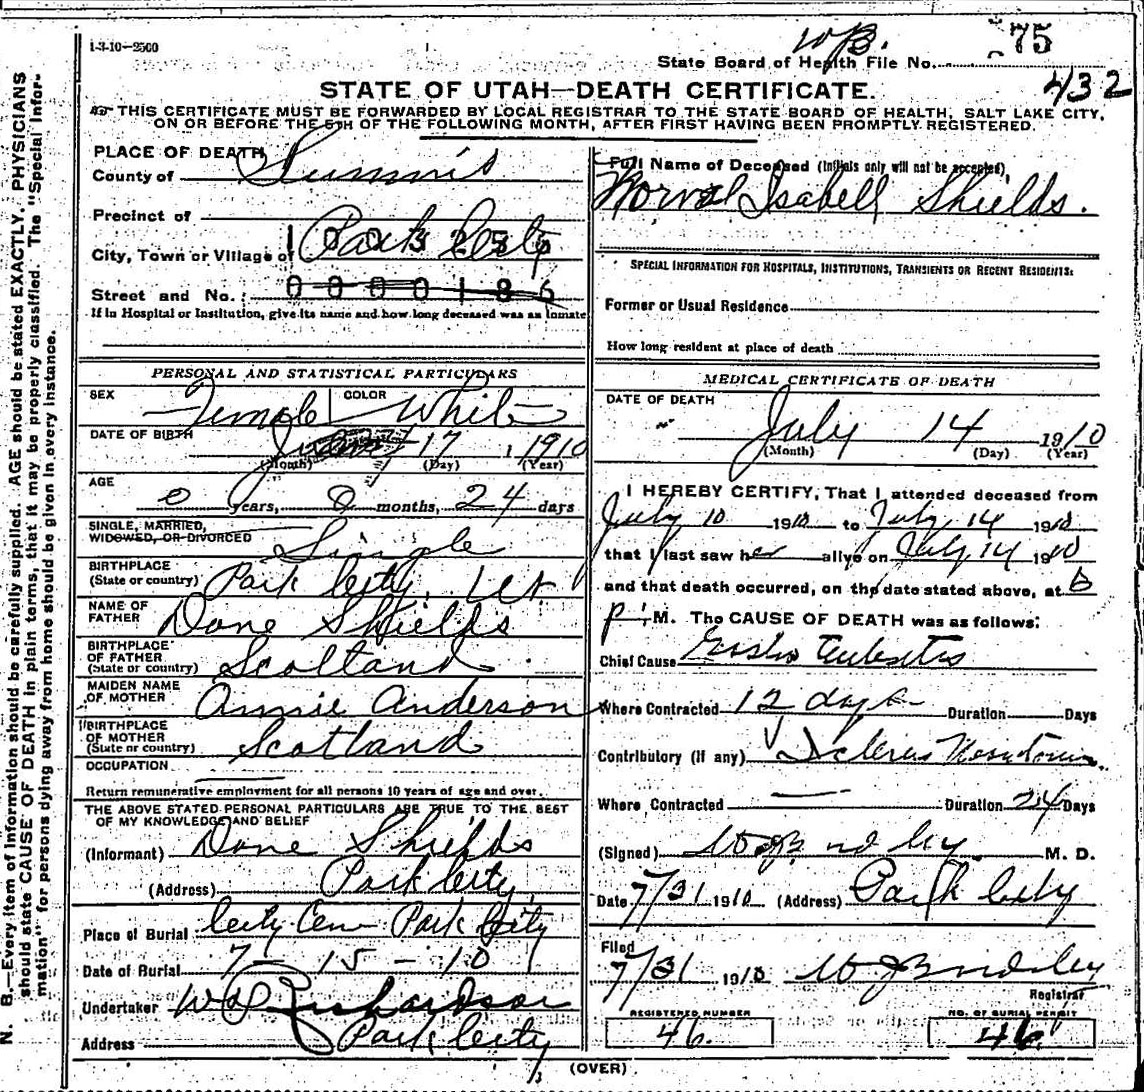 1-3-10—2500
75
State Board of Health File No.
432
STATE OF UTAH—DEATH CERTIFICATE.
THIS CERTIFICATE MUST BE FORWARDED BY LOCAL REGISTRAR TO THE STATE BOARD OF HEALTH, SALT LAKE CITY,
ON OR BEFORE THE 5TH OF THE FOLLOWING MONTH, AFTER FIRST HAVING BEEN PROMPTLY REGISTERED.
N. B.—Every item of information should be carefully supplied. AGE should be stated EXACTLY. PHYSICIANS
should state CAUSE OF DEATH in plain terms, that it may be properly classified. The "Special Infor-
mation" for persons dying away from home should be given in every instance.
PLACE OF DEATH
County of Summit
Precinct of
City, Town or Village of Park City
Street and No.
If in Hospital or Institution, give its name and how long deceased was an inmate
PERSONAL AND STATISTICAL PARTICULARS
SEX Female COLOR White
DATE OF BIRTH 17 1910
(Month) (Day) (Year)
AGE
0 years, 0 months, 24 days
SINGLE, MARRIED,
WIDOWED, OR DIVORCED Single
BIRTHPLACE
(State or country) Park City, Ut
NAME OF
FATHER Dane Shields
BIRTHPLACE
OF FATHER
(State or country) Scotland
MAIDEN NAME
OF MOTHER Annie Anderson
BIRTHPLACE
OF MOTHER
(State or country) Scotland
OCCUPATION
Return remunerative employment for all persons 10 years of age and over.
THE ABOVE STATED PERSONAL PARTICULARS ARE TRUE TO THE BEST
OF MY KNOWLEDGE AND BELIEF
(Informant) Dane Shields
(Address) Park City
Place of Burial City Cem Park City
Date of Burial 7 - 15 - 10
Undertaker Richardson
Address Park City
Full Name of Deceased (Initials only will not be accepted)
Isabell Shields.
SPECIAL INFORMATION FOR HOSPITALS, INSTITUTIONS, TRANSIENTS OR RECENT RESIDENTS:
Former or Usual Residence
How long resident at place of death
MEDICAL CERTIFICATE OF DEATH
DATE OF DEATH
July 14 1910
(Month) (Day) (Year)
I HEREBY CERTIFY, That I attended deceased from
July 10 1910 to July 14 1910
that I last saw her alive on July 14 1910
and that death occurred, on the date stated above, at 6
P. M. The CAUSE OF DEATH was as follows:
Chief Cause
Where Contracted 12 days Duration Days
Contributory (if any)
Where Contracted Duration 24 Days
(Signed) M. D.
Date 7/31 1910 (Address) Park City
Filed
7/31 1910
Registrar
REGISTERED NUMBER
46.
NO. OF BURIAL PERMIT
46.
(OVER)